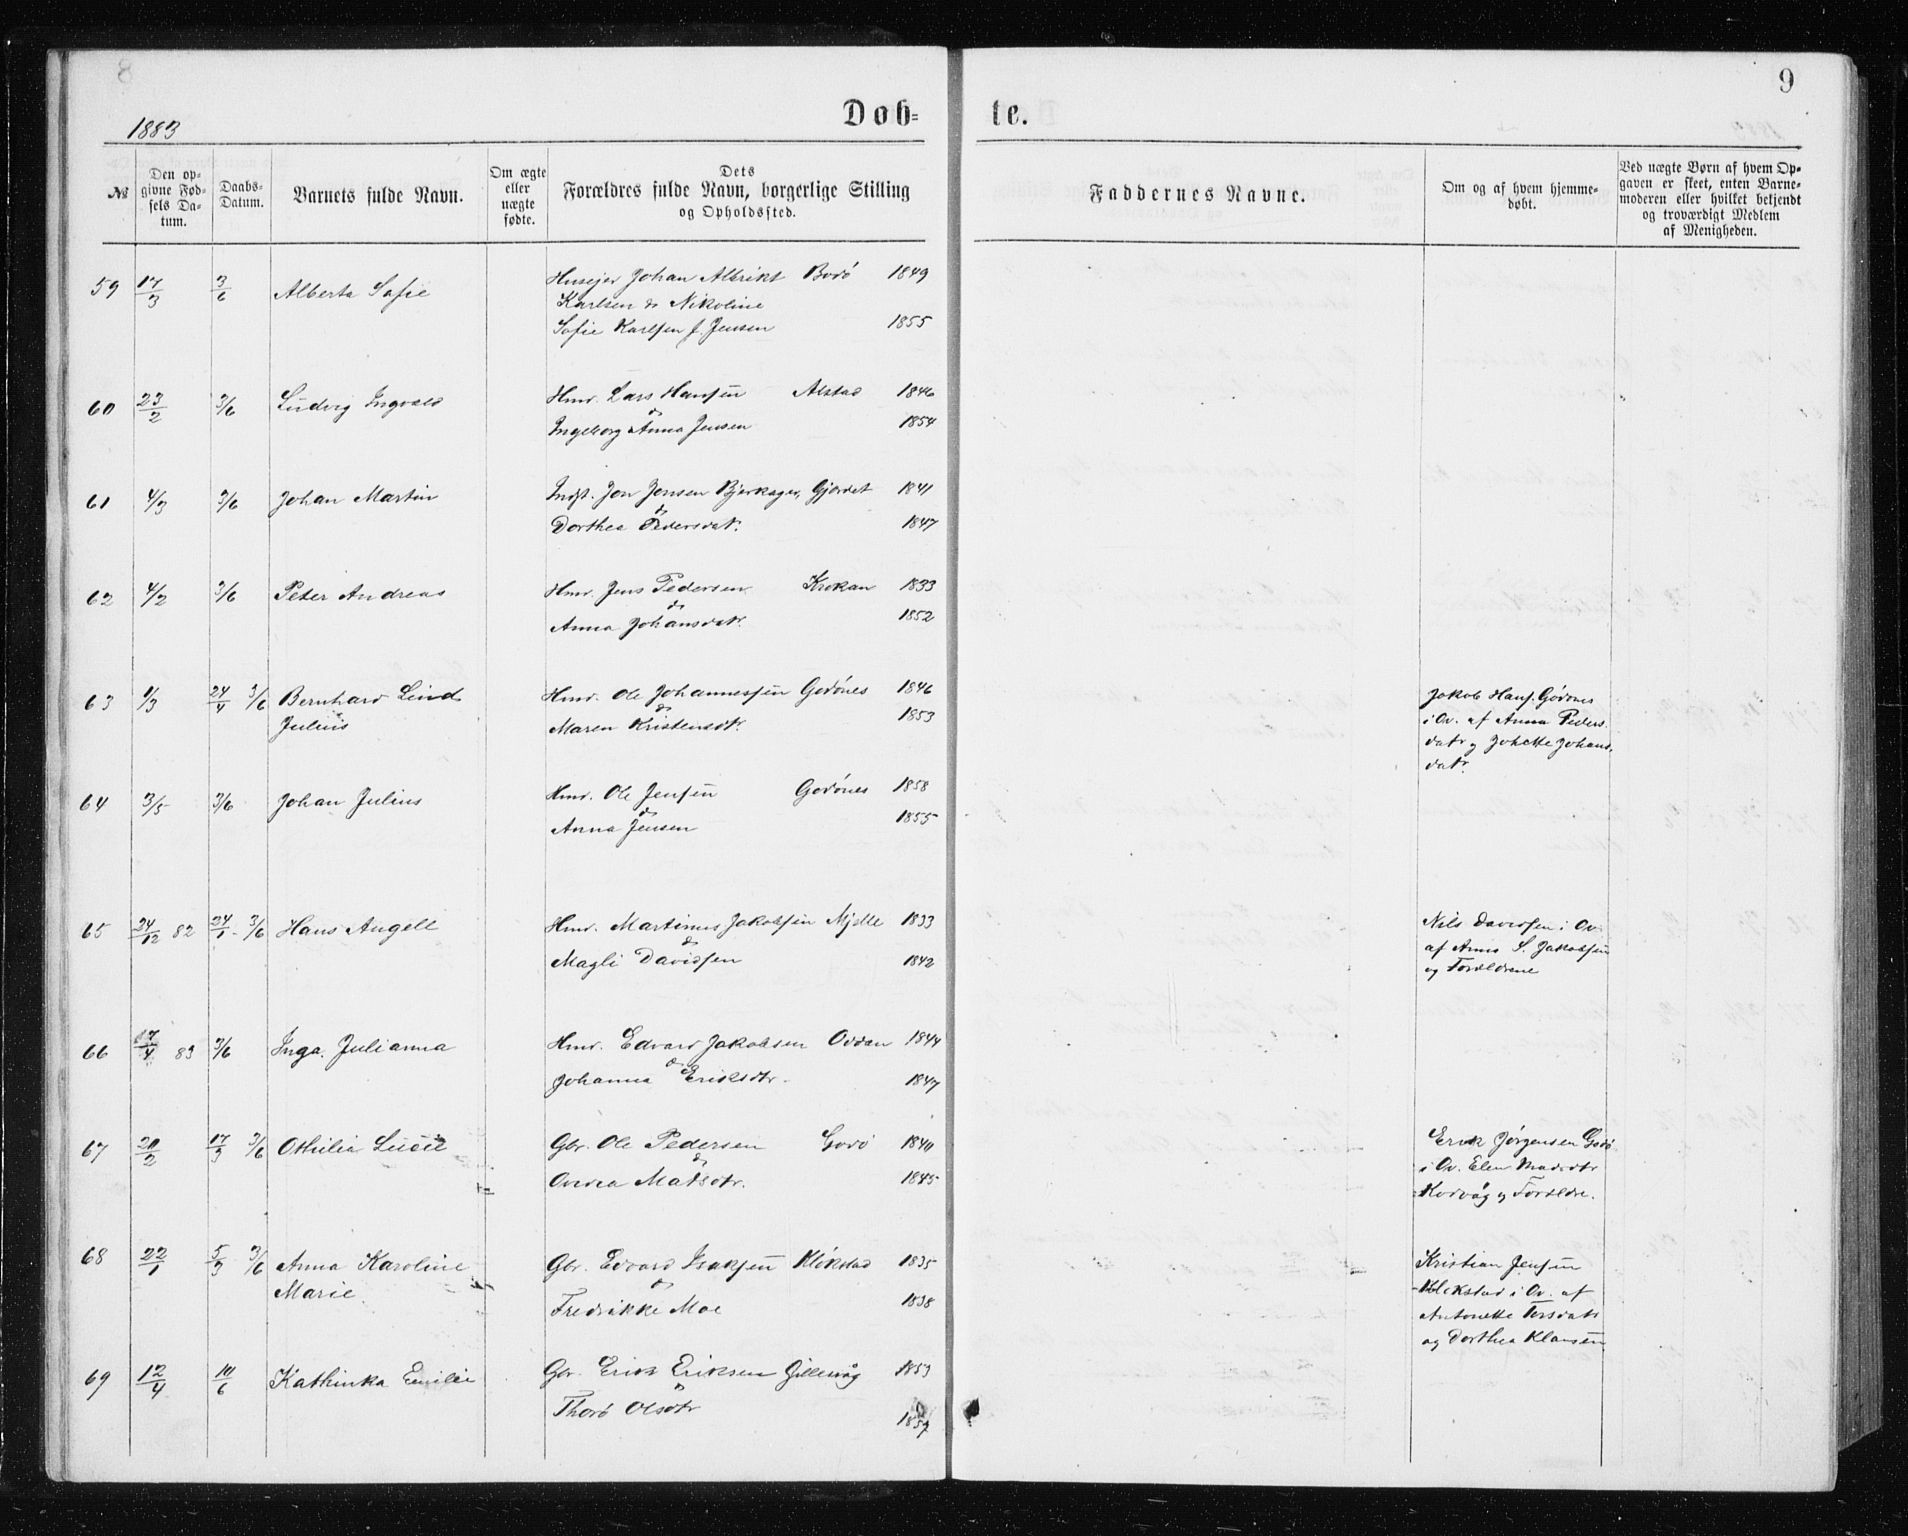 9
1883
Dob-
te.
№
Den op-
givne Fød-
sels Da-
tum.
Daabs-
Datum.
Barnets fulde Navn.
Om ægte
eller
uægte
fødte.
Dets
Forældres fulde Navn, borgerlige Stilling
og Opholdssted.
Faddernes Navne.
Om og af hvem hjemme-
døbt.
Ved uægte Børn af hvem Op-
gaven er skeet, enten Barne-
moderen eller hvilket bekjendt
og troværdigt Medlem
af Menigheden.
59 17/3 3/6 Alberta Sofie Husejer Johan Albrikt Bodö 1849
Karlsen & Nikoline
Sofie Karlsen f. Jensen 1855
60 23/2 3/6 Ludvig Ingvald Hmd. Lars Hansen Alstad 1846
&
Ingeborg Anna Jensen 1854
61 4/3 3/6 Johan Martin Indst. Jon Jonsen Bjerkager, Gjerdet 1841
&
Dorthea Pedersdatr. 1847
62 4/2 3/6 Peter Andreas Hmd. Jens Pedersen Krokan 1833
&
Anna Johansdatr. 1852
63 1/3 24/4 3/6 Bernhard Lind Hmd. Ole Johannessen Godönes 1846
Julius &
Maren Kristensdtr. 1853
Jakob Hans. Gödönes
i Ov. af Anna Peders-
datr og Johette Johans-
datr.
64 3/5 3/6 Johan Julius Hmd. Ole Jensen Godönes 1858
&
Anna Jensen 1855
65 24/12 82 24/1 - 3/6 Hans Angell Hmd. Martinus Jakobsen Mjelle 1833
&
Magli Davidsen 1842
Nils Davidsen i Ov.
af Anne S. Jakobsen
og Forældrene
66 17/4 83 3/6 Inga Julianna Hmd. Edvard Jakobsen Oddan 1844
&
Johanna Eriksdtr. 1847
67 20/2 17/3 3/6 Othilia Lucie Gbr. Ole Pedersen Godö 1840
&
Ovedia Matsdtr. 1845
Erik Jørgensen Godö
i Ov. Elen Madsdtr
Kodvåg og Forældre.
68 22/1 5/3 3/6 Anna Karoline Gbr. Edvard Isaksen Klökstad 1835
Marie &
Fredrikke Moe 1838
Kristian Jensen
Klökstad i Ov. af
Antonette Torsdatr
og Dorthea Klausen
69 12/4 10/6 Kathinka Emilie Gbr. Erik Eriksen Gillesvåg 1853
&
Thora Olsdtr 1857